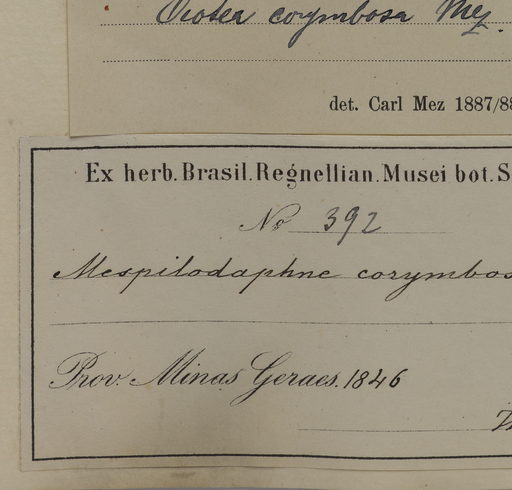 Ocotea corymbosa Mez.
det. Carl Mez 1887/88
Ex herb. Brasil. Regnellian. Musei bot. S
No 392
Mespilodaphne corymbos
Prov. Minas Geraes. 1846